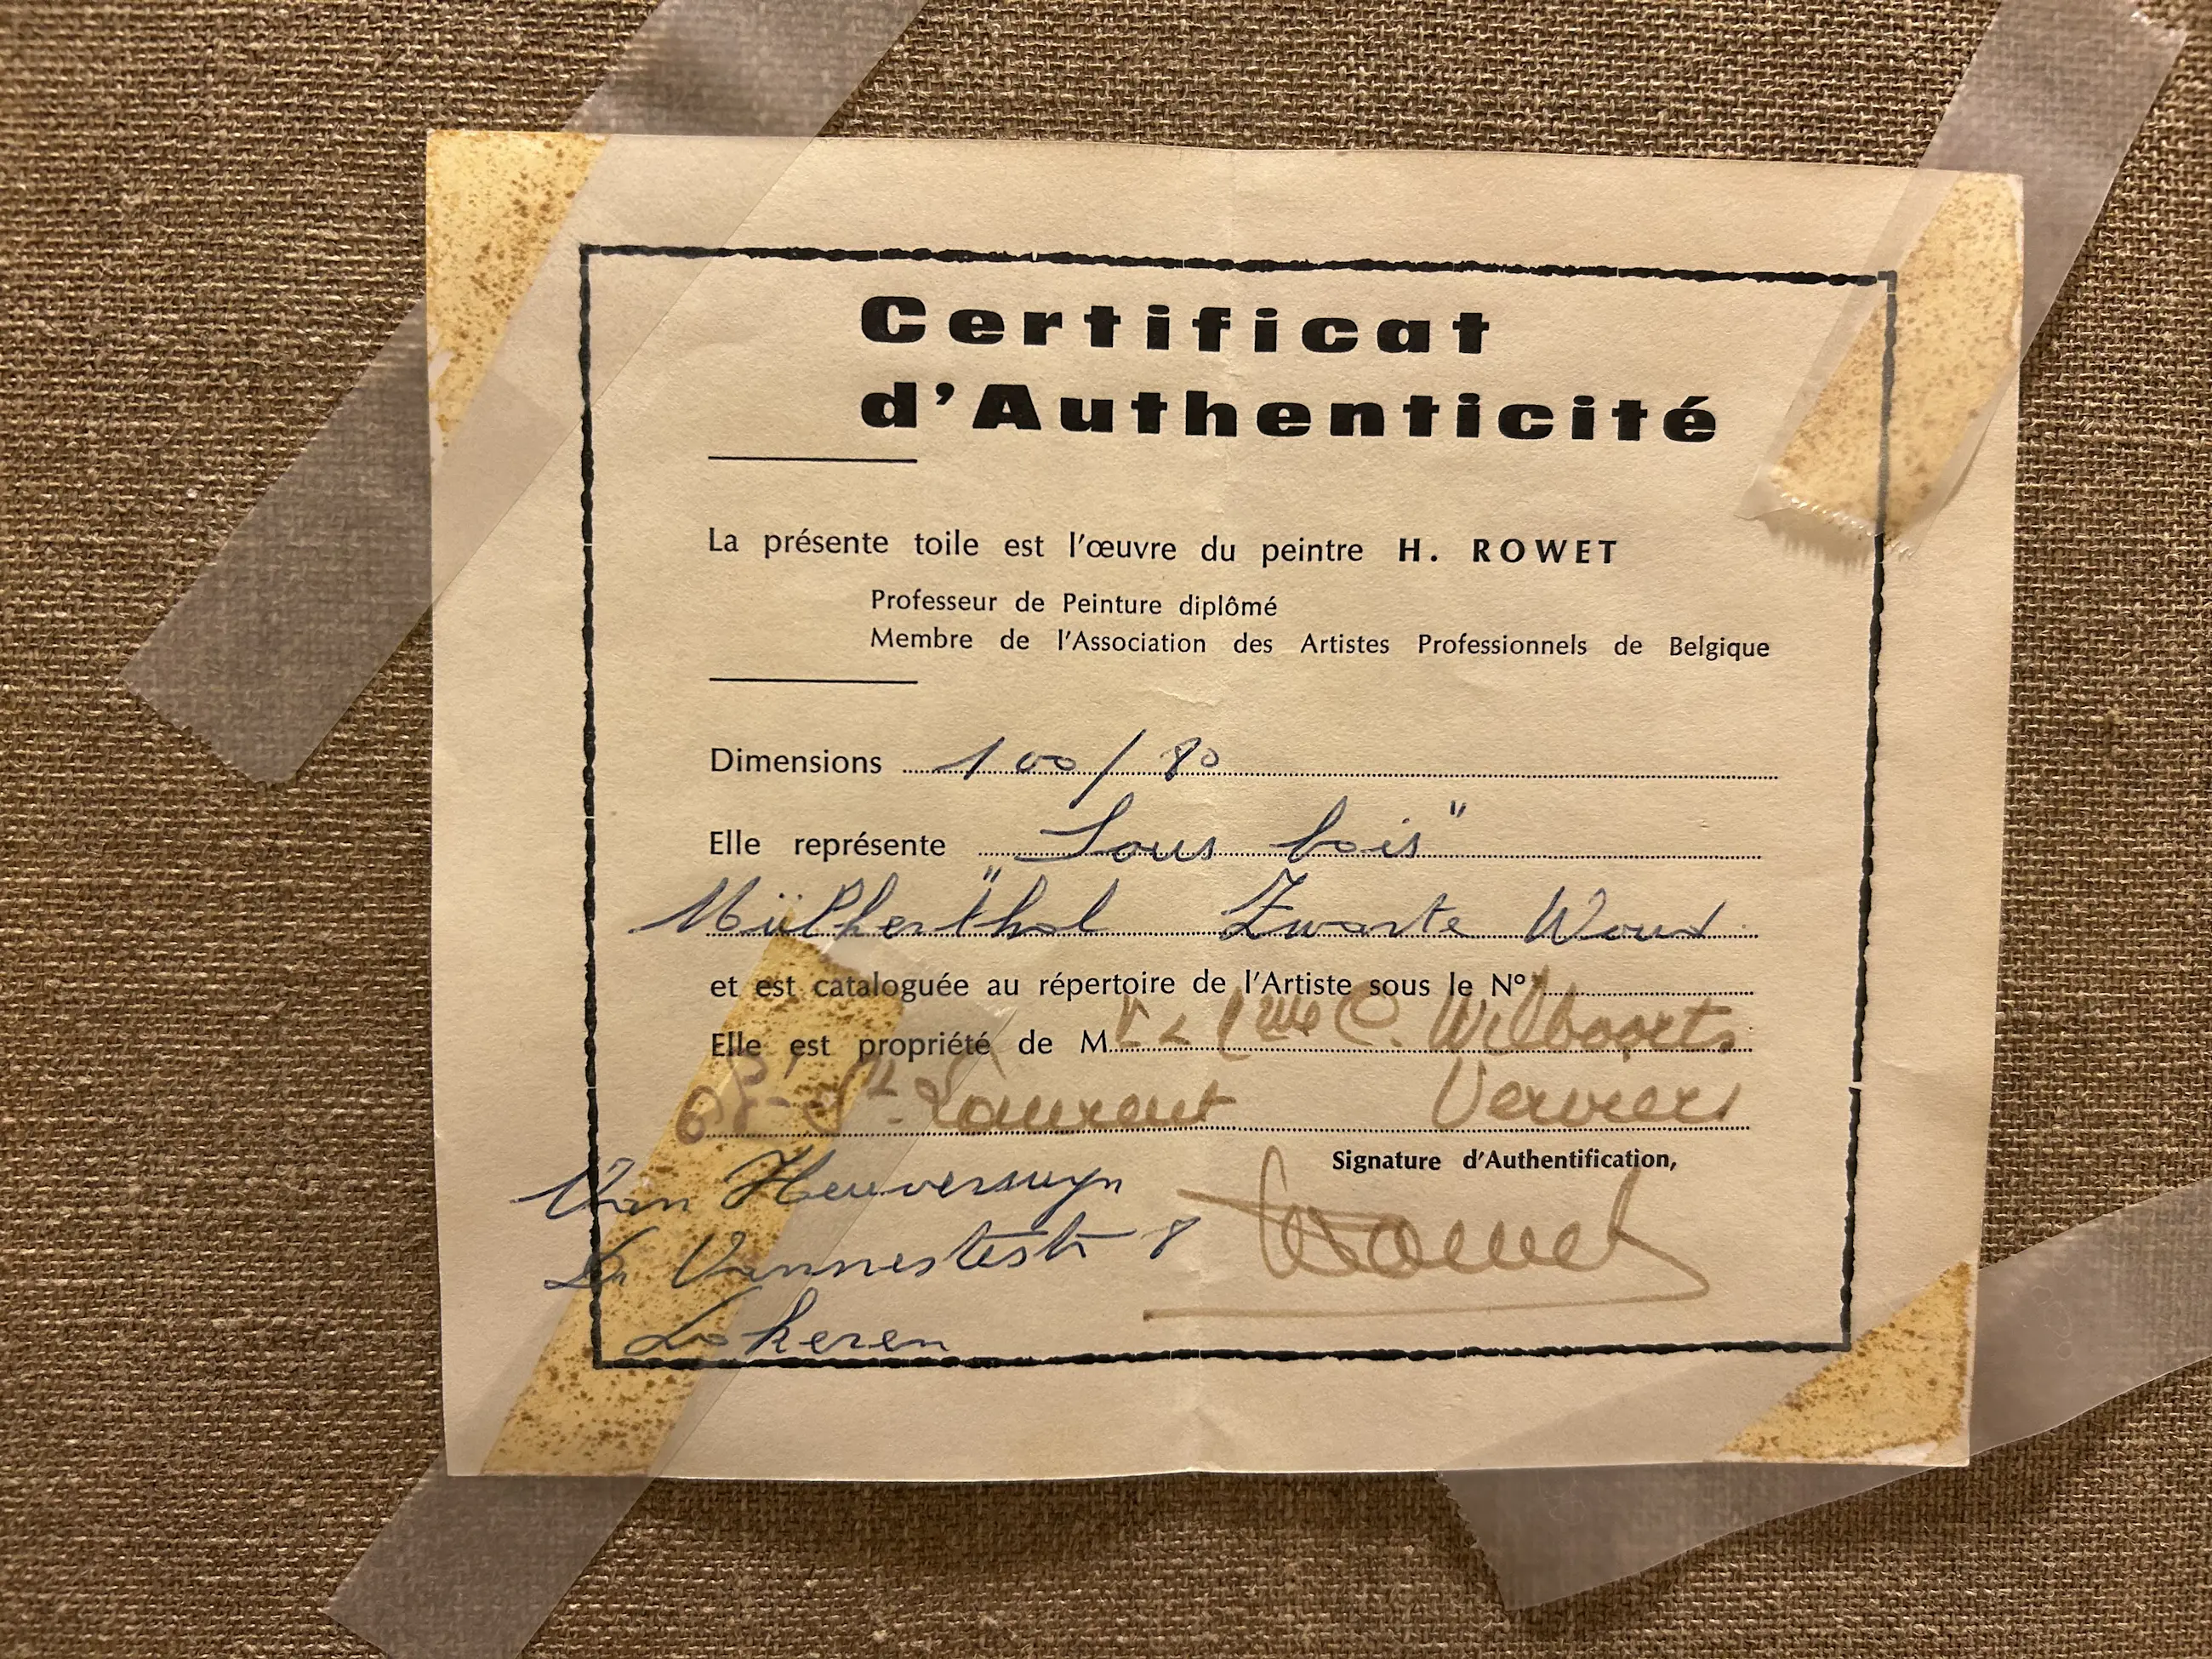 Certificat
d'Authenticité
La présente toile est l'œuvre du peintre H. ROWET
Professeur de Peinture diplômé
Membre de l'Association des Artistes Professionnels de Belgique
Dimensions 100/80
Elle représente "Sous bois"
Zwarte Woud
et est cataloguée au répertoire de l'Artiste sous le N°
Elle est propriété de M C. Wilboorts
St. Laurent Verviers
Signature d'Authentification,
Van Heuverswyn
Dr Vannestestr 8
Lokeren